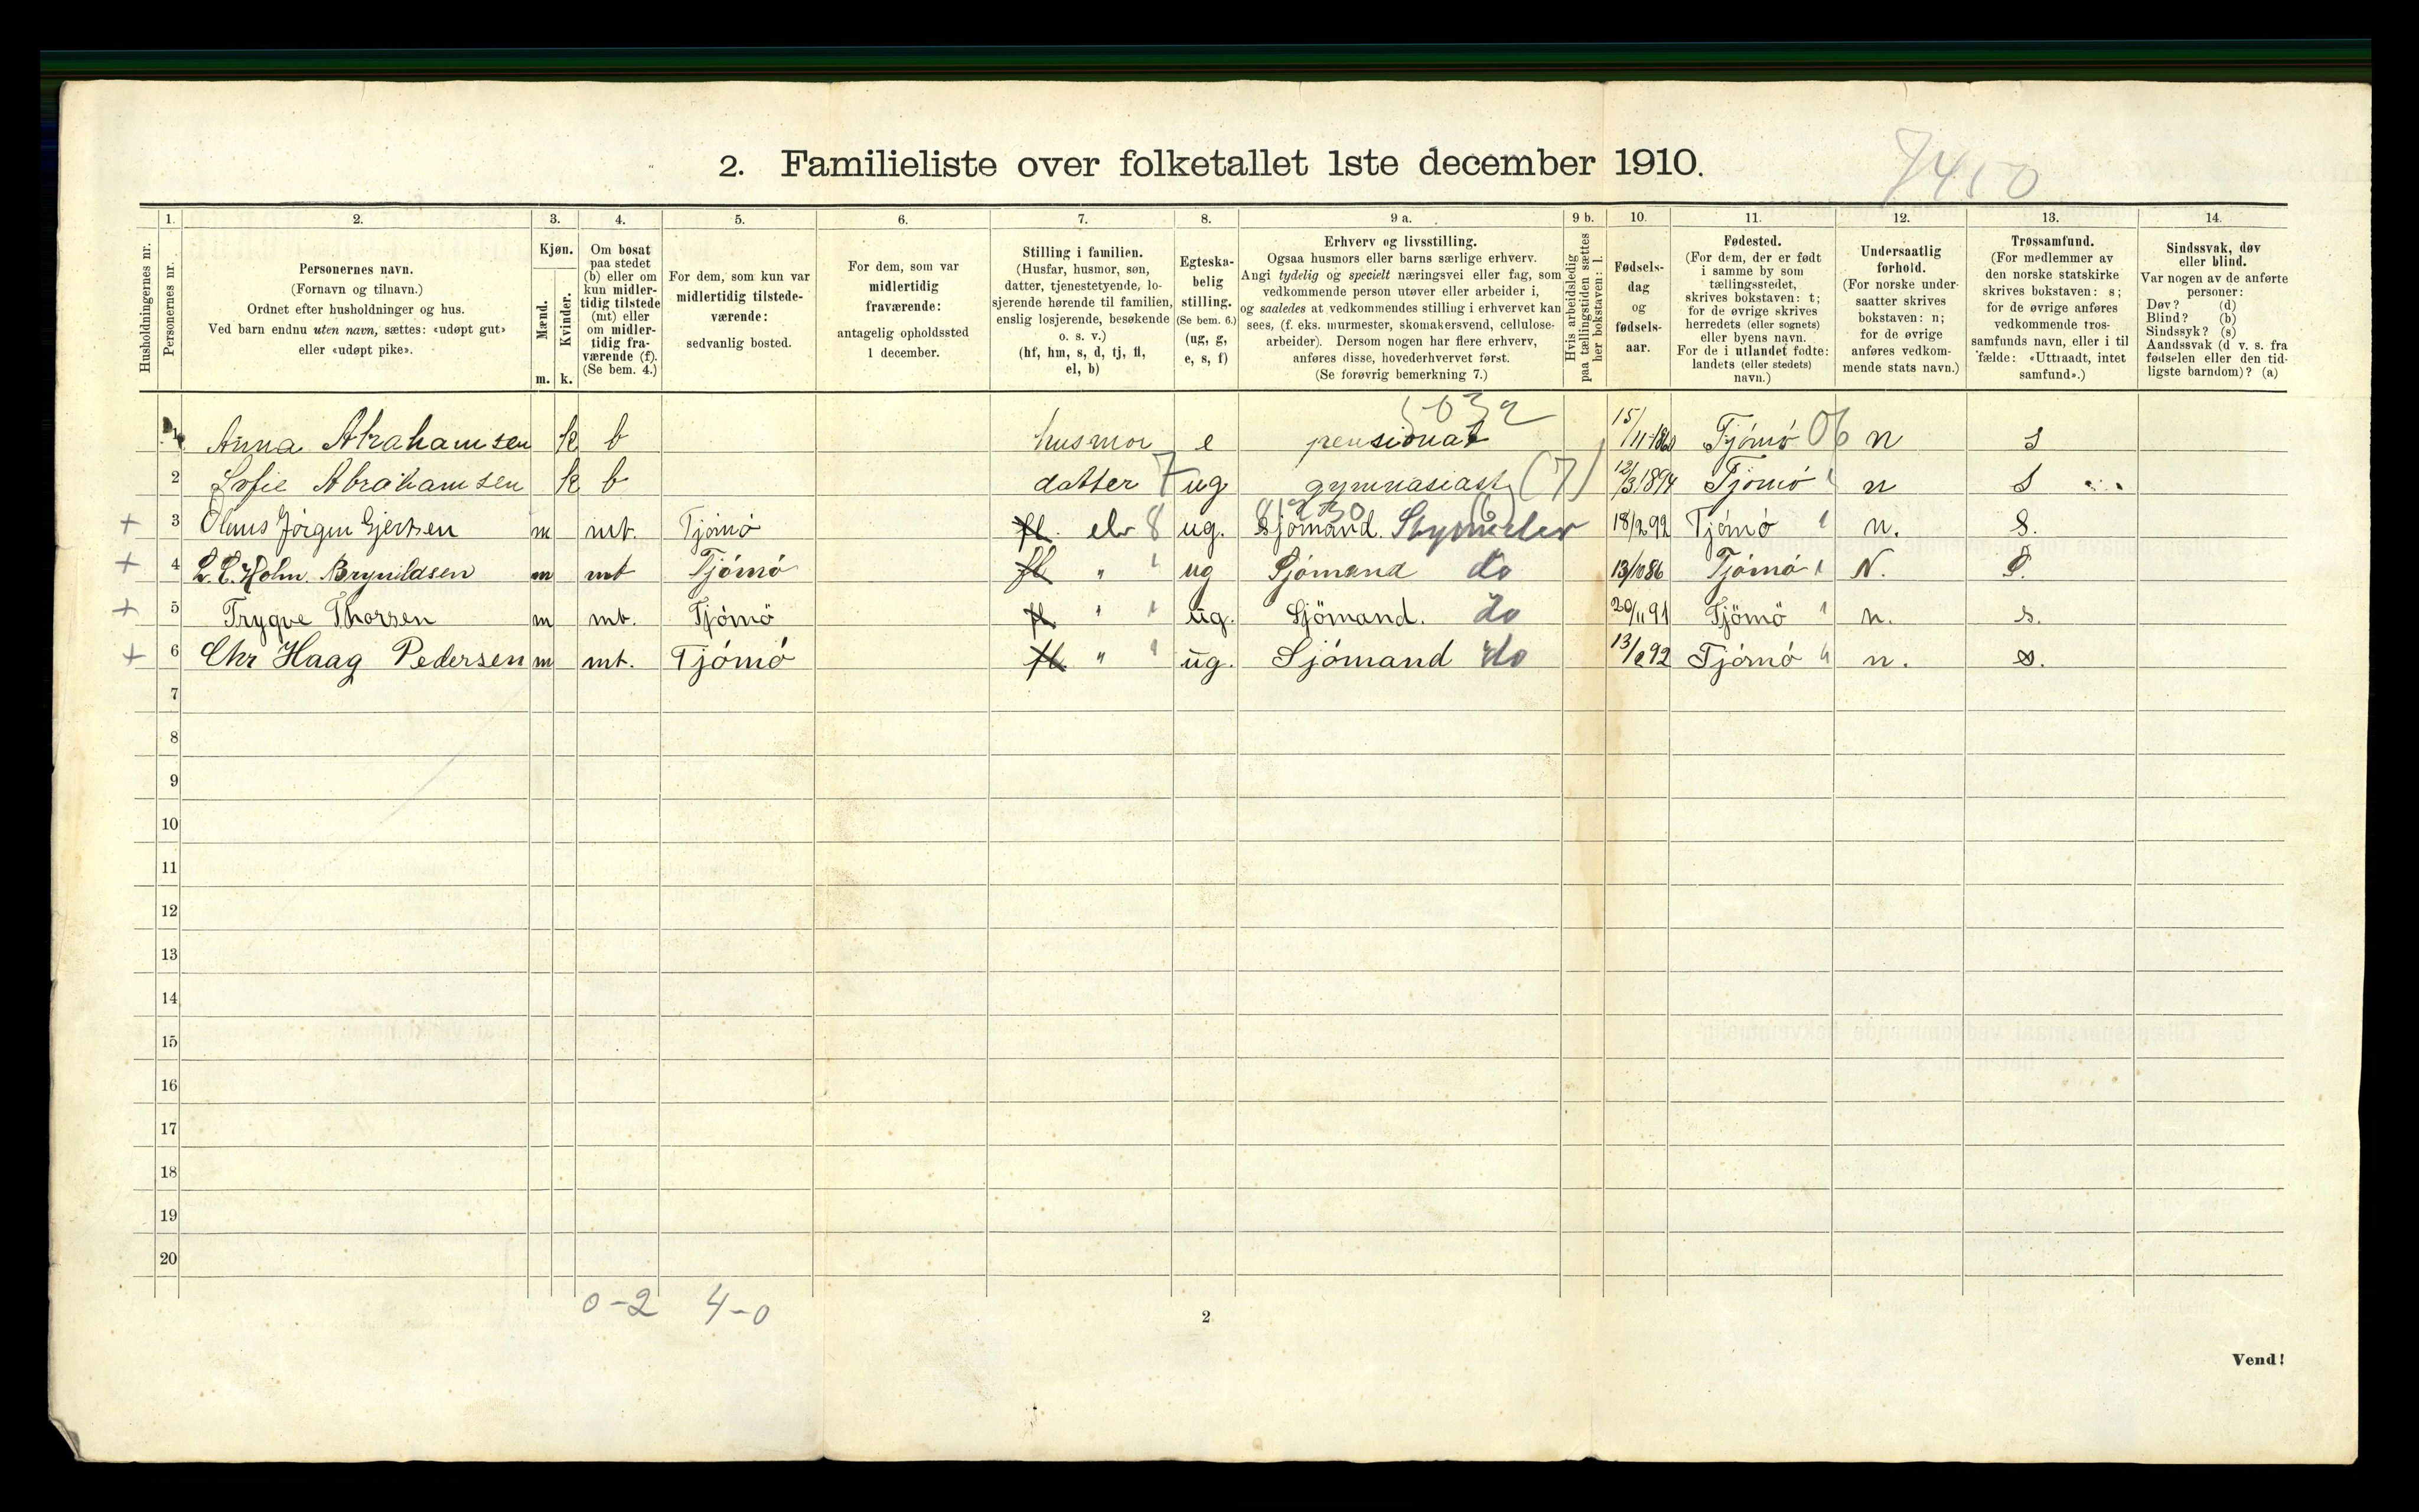 7450
2. Familieliste over folketallet 1ste december 1910.
Husholdningernes nr.
1. Personernes nr.
2. Personernes navn. (Fornavn og tilnavn.) Ordnet efter husholdninger og hus. Ved barn endnu uten navn, sættes: «udøpt gut» eller «udøpt pike».
3. Kjøn. Mænd. m. Kvinder. k.
4. Om bosat paa stedet (b) eller om kun midlertidig tilstede (mt) eller om midlertidig fraværende (f). (Se bem. 4.)
5. For dem, som kun var midlertidig tilstedeværende: sedvanlig bosted.
6. For dem, som var midlertidig fraværende: antagelig opholdssted 1 december.
7. Stilling i familien. (Husfar, husmor, søn, datter, tjenestetyende, losjerende hørende til familien, enslig losjerende, besøkende o. s. v.) (hf, hm, s, d, tj, fl, el, b)
8. Egteskabelig stilling. (Se bem. 6.) (ug, g, e, s, f)
9 a. Erhverv og livsstilling. Ogsaa husmors eller barns særlige erhverv. Angi tydelig og specielt næringsvei eller fag, som vedkommende person utøver eller arbeider i, og saaledes at vedkommendes stilling i erhvervet kan sees, (f. eks. murmester, skomakersvend, cellulosearbeider). Dersom nogen har flere erhverv, anføres disse, hovederhvervet først. (Se forøvrig bemerkning 7.)
9 b. Hvis arbeidsledig paa tællingstiden sættes her bokstaven: l.
10. Fødselsdag og fødselsaar.
11. Fødested. (For dem, der er født i samme by som tællingsstedet, skrives bokstaven: t; for de øvrige skrives herredets (eller sognets) eller byens navn. For de i utlandet fødte: landets (eller stedets) navn.)
12. Undersaatlig forhold. (For norske undersaatter skrives bokstaven: n; for de øvrige anføres vedkommende stats navn.)
13. Trossamfund. (For medlemmer av den norske statskirke skrives bokstaven: s; for de øvrige anføres vedkommende trossamfunds navn, eller i tilfælde: «Uttraadt, intet samfund».)
14. Sindssvak, døv eller blind. Var nogen av de anførte personer: Døv? (d) Blind? (b) Sindssyk? (s) Aandssvak (d v. s. fra fødselen eller den tidligste barndom)? (a)
5032
1 Anna Abrahamsen k b husmor e pensionat 15/11-1860 Tjömö 06 n s
2 Sofie Abrahamsen k b datter 7 ug gymnasiast (7) 12/3 1894 Tjömö n s
+ 3 Olaus Jörgen Gjertsen m mt. Tjömö fl. elv 8 ug. Sjömand. 18/2 92 Tjömö n. S.
+ 4 L. C. Holm Brynildsen m mt Tjömö fl " ug Sjömand do 13/10 86 Tjömö N. S.
+ 5 Trygve Thorsen m mt. Tjömö fl " ug. Sjömand. do 20/11 91 Tjömö n. s.
+ 6 Chr Haag Pedersen m mt. Tjömö fl " ug. Sjömand do Tjömö n. s.
7
8
9
10
11
12
13
14
15
16
17
18
19
20
0-2 4-0
2
Vend!